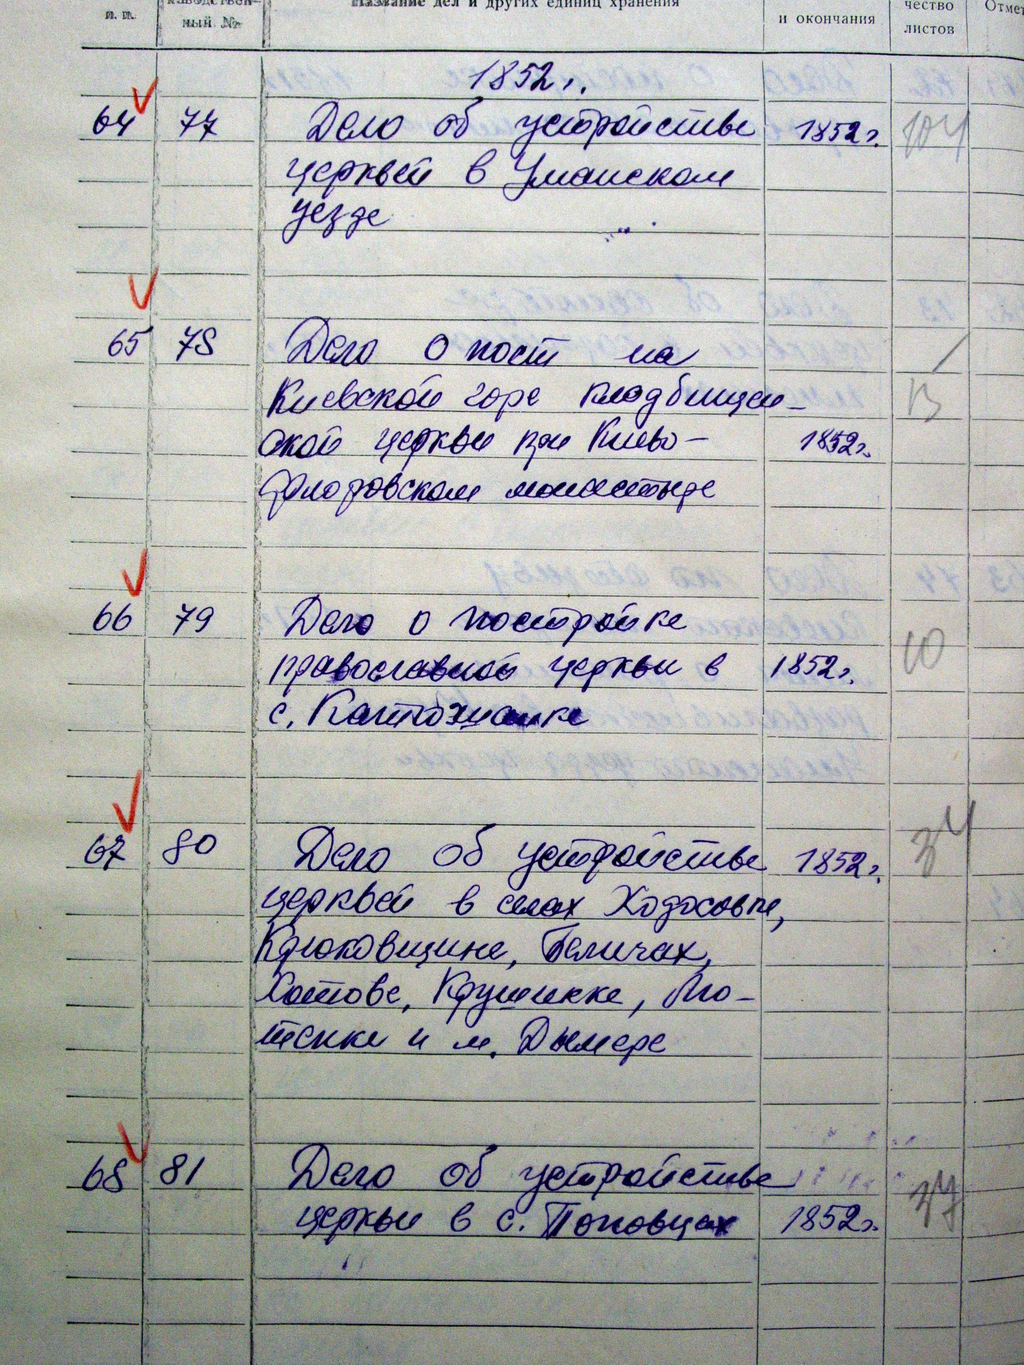 п. п. ный № Название дел и других единиц хранения и окончания чество листов Отме
1852 г.
64 77 Дело об устройстве 1852 г. 104
церквей в Уманском
уезде
65 78 Дело о пост на
Киевской горе кладбищен- 13
ской церкви при Киево- 1852 г.
Флоровском монастыре
66 79 Дело о постройке
православной церкви в 1852 г. 10
с. Каптожанке
67 80 Дело об устройстве 1852 г. 34
церквей в селах Ходосовке,
Крюковщине, Беличах,
Хотове, Крушинке, Лю-
тенки и м. Дымере
68 81 Дело об устройстве
церкви в с. Поповцах 1852 г. 37